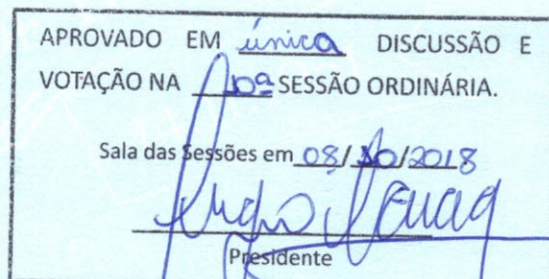 APROVADO EM única DISCUSSÃO E
VOTAÇÃO NA SESSÃO ORDINÁRIA.
Sala das Sessões em 08/10/2018
Presidente